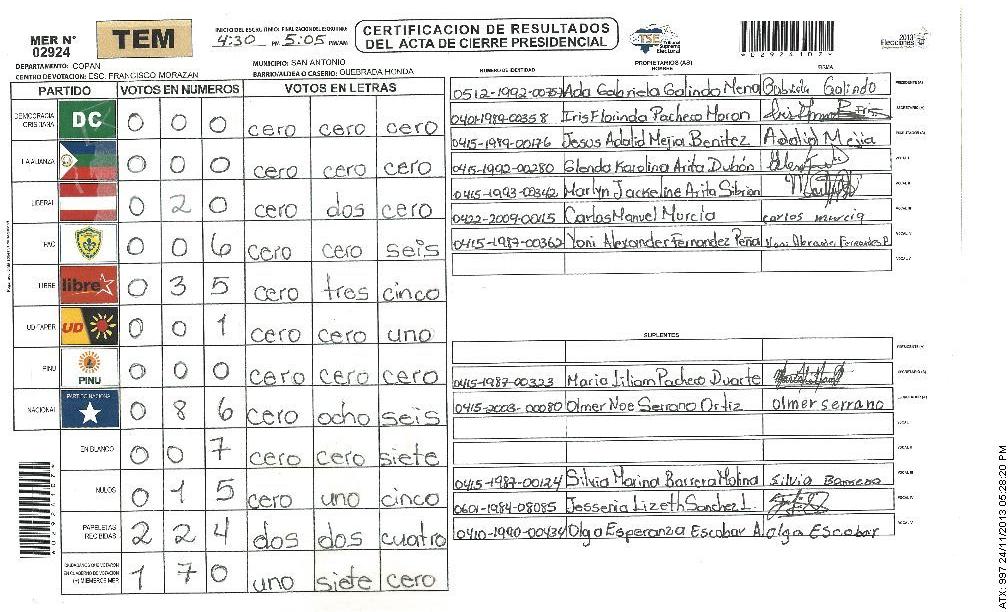 MER N° 02924
TEM
INICIO DEL ESCRUTINIO: FINALIZACION DEL ESCRUTINIO:
4:30 PM 5:05 PM/AM
CERTIFICACION DE RESULTADOS
DEL ACTA DE CIERRE PRESIDENCIAL
TSE
Tribunal Supremo Electoral
2013 Elecciones
DEPARTAMENTO: COPAN
MUNICIPIO: SAN ANTONIO
CENTRO DE VOTACION: ESC. FRANCISCO MORAZAN
BARRIO/ALDEA O CASERIO: QUEBRADA HONDA
PARTIDO VOTOS EN NUMEROS VOTOS EN LETRAS
DEMOCRACIA CRISTIANA DC 0 0 0 cero cero cero
LA ALIANZA 0 0 0 cero cero cero
LIBERAL 0 2 0 cero dos cero
PAC 0 0 6 cero cero seis
LIBRE libre 0 3 5 cero tres cinco
UD FAPER UD 0 0 1 cero cero uno
PINU PINU 0 0 0 cero cero cero
NACIONAL PARTIDO NACIONAL 0 8 6 cero ocho seis
EN BLANCO 0 0 7 cero cero siete
NULOS 0 1 5 cero uno cinco
PAPELETAS RECIBIDAS 2 2 4 dos dos cuatro
CIUDADANOS QUE VOTARON EN CUADERNO DE VOTACION (+) MIEMBROS MER 1 7 0 uno siete cero
NUMERO DE IDENTIDAD PROPIETARIOS (AS) NOMBRE FIRMA
Ada Gabriela Galindo Mena Gabriela Galindo PRESIDENTE (A)
0401-1989-00358 Iris Florinda Pacheco Moran SECRETARIO (A)
0415-1989-00176 Jesus Adalid Mejia Benitez Adalid Mejia ESCRUTADOR (A)
0415-1992-00280 Glenda Karolina Arita Dubón VOCAL I
0415-1993-00342 Marlyn Jackseline Arita Sibrian VOCAL II
0422-2009-00115 Carlos Manuel Murcia carlos murcia VOCAL III
0415-1987-00362 Yoni Alexander Fernandez Peña Yoni Alexander Fernandez P VOCAL IV
VOCAL V
SUPLENTES
PRESIDENTE (A)
0415-1987-00323 Maria Liliam Pacheco Duarte SECRETARIO (A)
0415-2003-00080 Olmer Noe Serrano Ortiz olmer serrano ESCRUTADOR (A)
VOCAL I
VOCAL II
0415-1987-00124 Silvia Marina Barrera Molina Silvia Barrera VOCAL III
0601-1984-08085 Jessenia Lizeth Sanchez L. VOCAL IV
0410-1990-00434 Olga Esperanza Escobar A. olga Escobar VOCAL V
ATX: 997 24/11/2013 05:28:20 PM